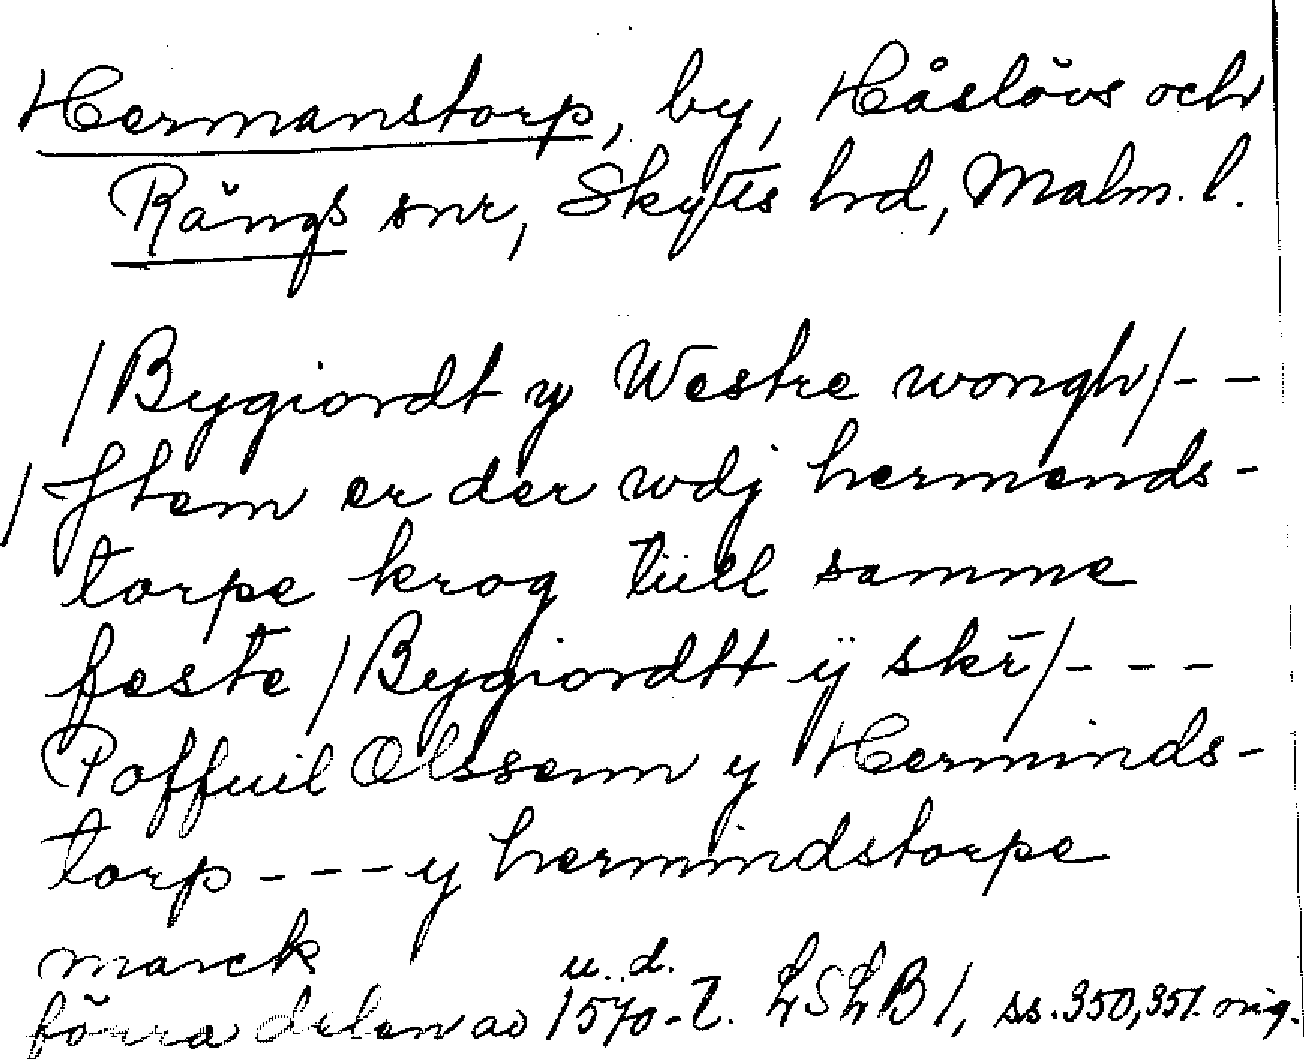 Hermanstorp, by, Håslövs och
Rängs snr, Skytts hd, Malm. l.
/Bygiordt y Westre wongh/- -
/Jtem er der wdj hermends-
torpe krog tiill samme
feste /Bygiordtt ÿ skr̄/- - -
Poffuil Olssenn y Herminds-
torp - - - y hermindstorpe
marck
u. d.
förra delen av 1570-t. LSLB 1, ss. 350, 351. orig.